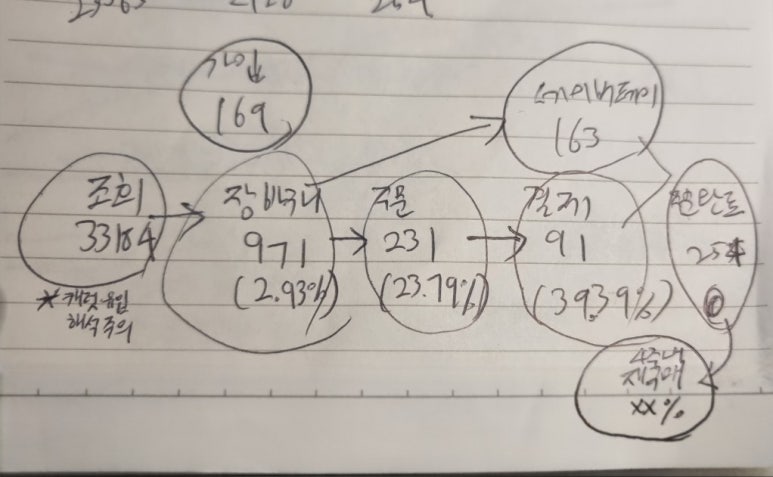 가입
169
네이버페이
163
조회
33184
*캐럿 유입
해석 주의
장바구니
971
(2.93%)
주문
231
(23.79%)
결제
91
(39.39%)
254
4주내
재구매
xx%